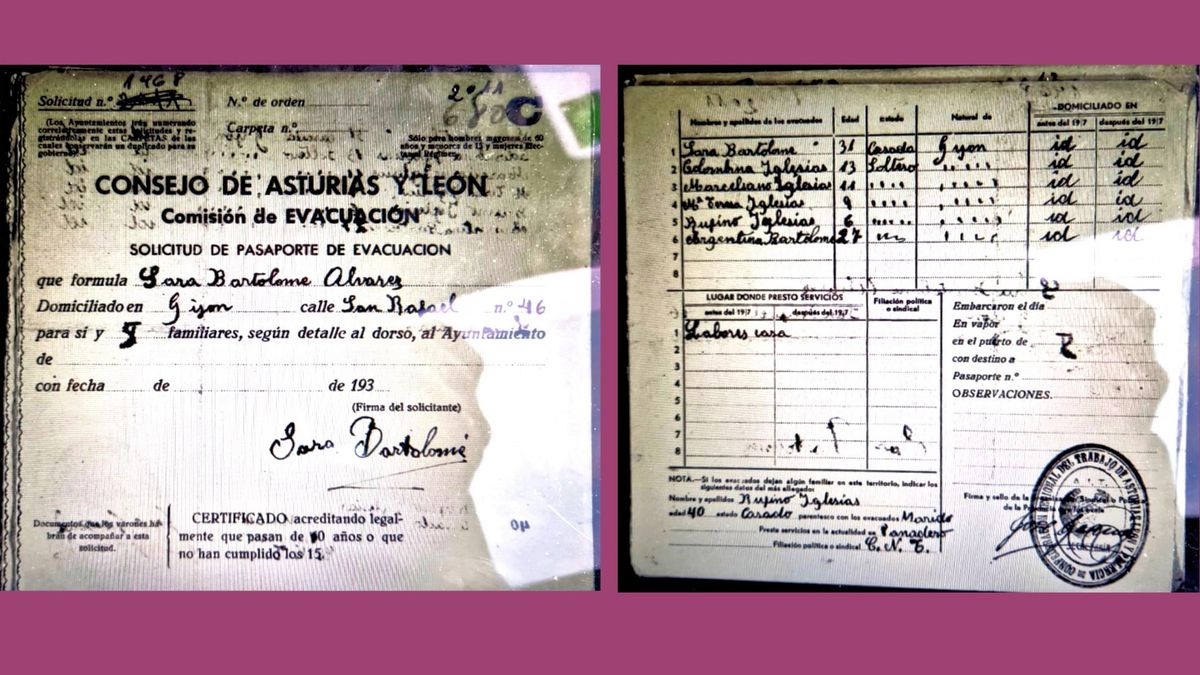 1468
Solicitud n.º
N.º de orden
2º 11
(Los Ayuntamientos irán numerando
correlativamente estas solicitudes y re-
gistrándolas en las CARPETAS de las
cuales conservarán un duplicado para su
gobierno).
Carpeta n.º
Sólo para hombres, mayores de 60
años y menores de 15 y mujeres
CONSEJO DE ASTURIAS Y LEÓN
Comisión de EVACUACIÓN
SOLICITUD DE PASAPORTE DE EVACUACION
que formula Sara Bartolome Alvares
Domiciliado en Gijon calle San Rafael n.º 46
para sí y familiares, según detalle al dorso, al Ayuntamiento
de
con fecha de de 193
(Firma del solicitante)
Sara Bartolomé
Documentos que los varones ha-
brán de acompañar a esta
solicitud.
CERTIFICADO acreditando legal-
mente que pasan de años o que
no han cumplido los 15.
Nombres y apellidos de los evacuados Edad Estado Natural de
DOMICILIADO EN
antes del 19/7 después del 19/7
1 Sara Bartolomé 31 Casada Gijon id id
2 Colombina Iglesias 13 Soltero " id id
3 Marceliano Iglesias 11 " " id id
4 Mª Iglesias 9 " " id id
5 Rufino Iglesias 6 " " id id
6 Argentina Bartolome 27 " " id id
7
8
LUGAR DONDE PRESTO SERVICIOS
antes del 19/7 después del 19/7
Filiación política
o sindical
1 Labores casa
2
3
4
5
6
7
8
Embarcaron el día
En vapor
en el puerto de
con destino a
Pasaporte n.º
OBSERVACIONES.
NOTA.—Si los evacuados dejan algún familiar en este territorio, indicar los
siguientes datos del más allegado:
Nombre y apellidos Rufino Iglesias
edad 40 estado Casado parentesco con los evacuados Marido
Presta servicios en la actualidad en Panadero
Filiación política o sindical C. N. T.
Firma y sello de la
CONFEDERACIÓN REGIONAL DEL TRABAJO DE ASTURIAS LEON Y PALENCIA